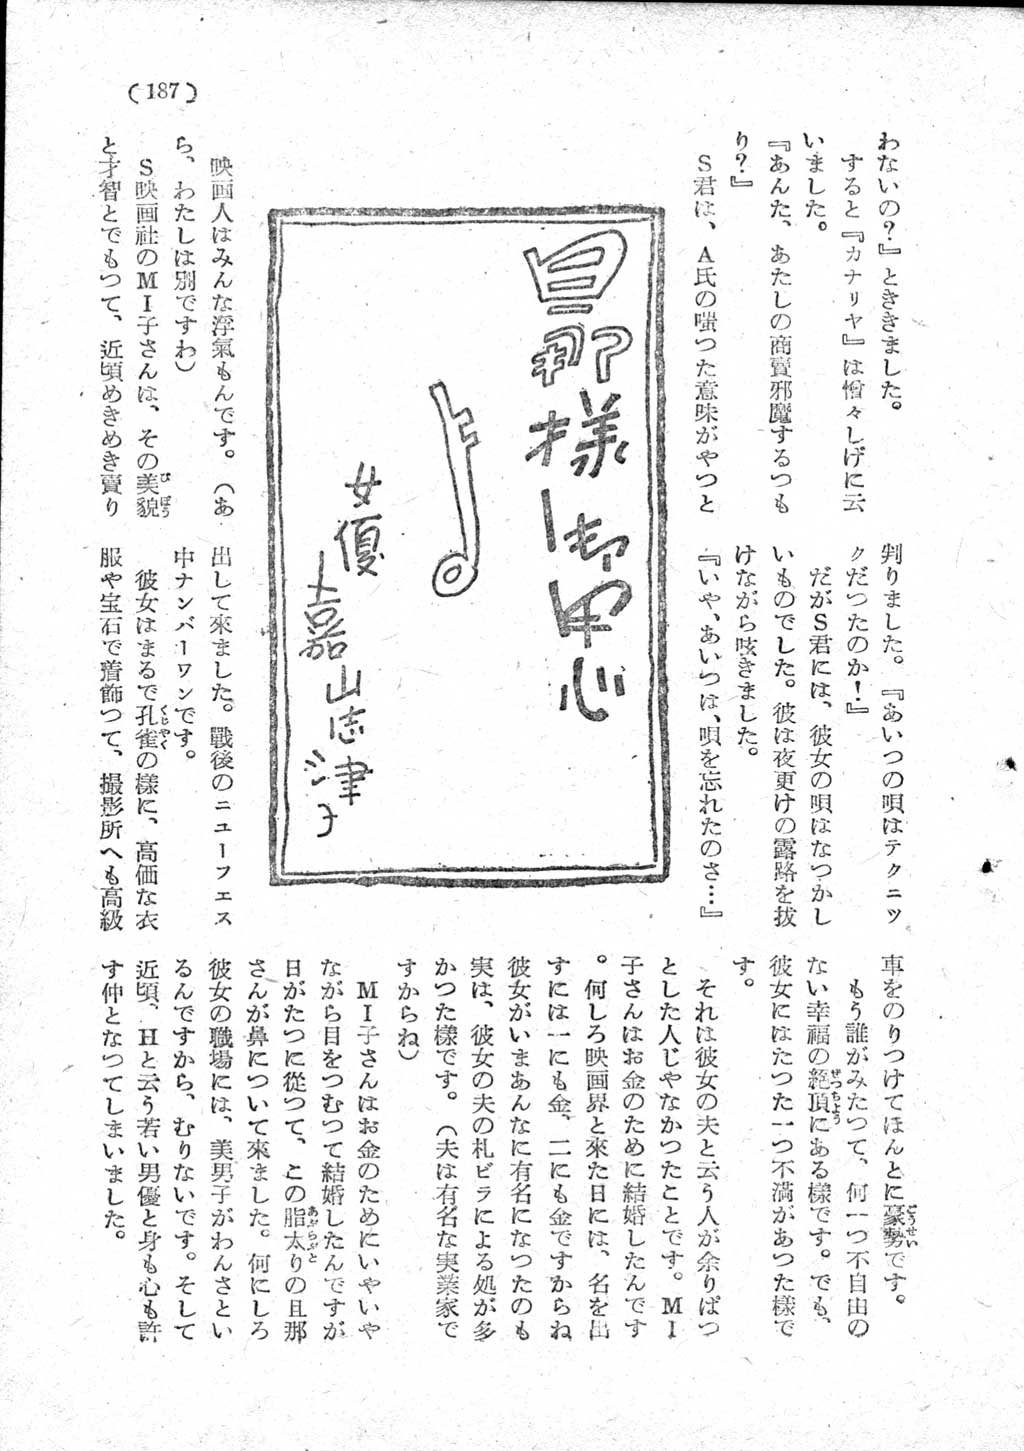 (187)
わないの？』とききました。
すると『カナリヤ』は憎々しげに云
いました。
『あんた、あたしの商賣邪魔するつも
り？』
S君は、A氏の嗤つた意味がやつと
判りました。『あいつの唄はテクニツ
クだつたのか！』
だがS君には、彼女の唄はなつかし
いものでした。彼は夜更けの露路を拔
けながら呟きました。
『いや、あいつは、唄を忘れたのさ…』
旦那様御用心
女優
嘉山志津子
映画人はみんな浮氣もんです。（あ
ら、わたしは別ですわ）
S映画社のMI子さんは、その美貌
びぼう
と才智とでもつて、近頃めきめき賣り
出して來ました。戰後のニューフエス
中ナンバーワンです。
彼女はまるで孔雀の様に、高価な衣
くじやく
服や宝石で着飾つて、撮影所へも高級
車をのりつけてほんとに豪勢です。
ごうせい
もう誰がみたつて、何一つ不自由の
ない幸福の絶頂にある様です。でも、
ぜつちよう
彼女にはたつた一つ不滿があつた様で
す。
それは彼女の夫と云う人が余りぱつ
とした人じやなかつたことです。MI
子さんはお金のために結婚したんです
。何しろ映画界と來た日には、名を出
すには一にも金、二にも金ですからね
彼女がいまあんなに有名になつたのも
実は、彼女の夫の札ビラによる処が多
かつた様です。（夫は有名な実業家で
すからね）
MI子さんはお金のためにいやいや
ながら目をつむつて結婚したんですが
日がたつに從つて、この脂太りの旦那
あぶらぶと
さんが鼻について來ました。何にしろ
彼女の職場には、美男子がわんさとい
るんですから、むりないです。そして
近頃、Hと云う若い男優と身も心も許
す仲となつてしまいました。